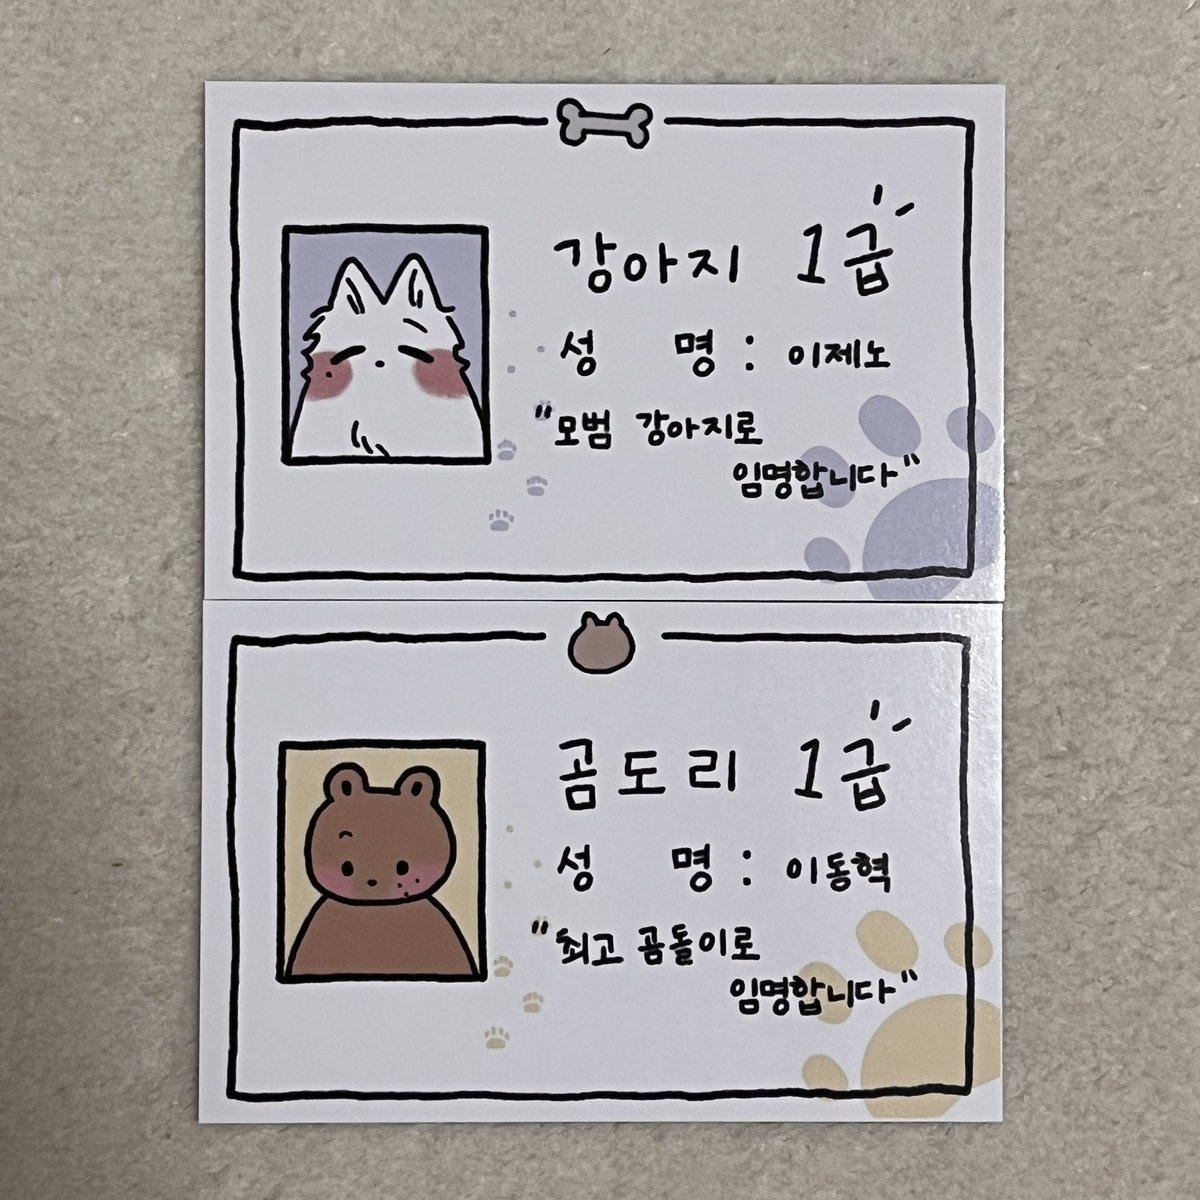 강아지 1급
성 명 : 이제노
"모범 강아지로
임명합니다"
곰도리 1급
성 명 : 이동혁
"최고 곰돌이로
임명합니다"